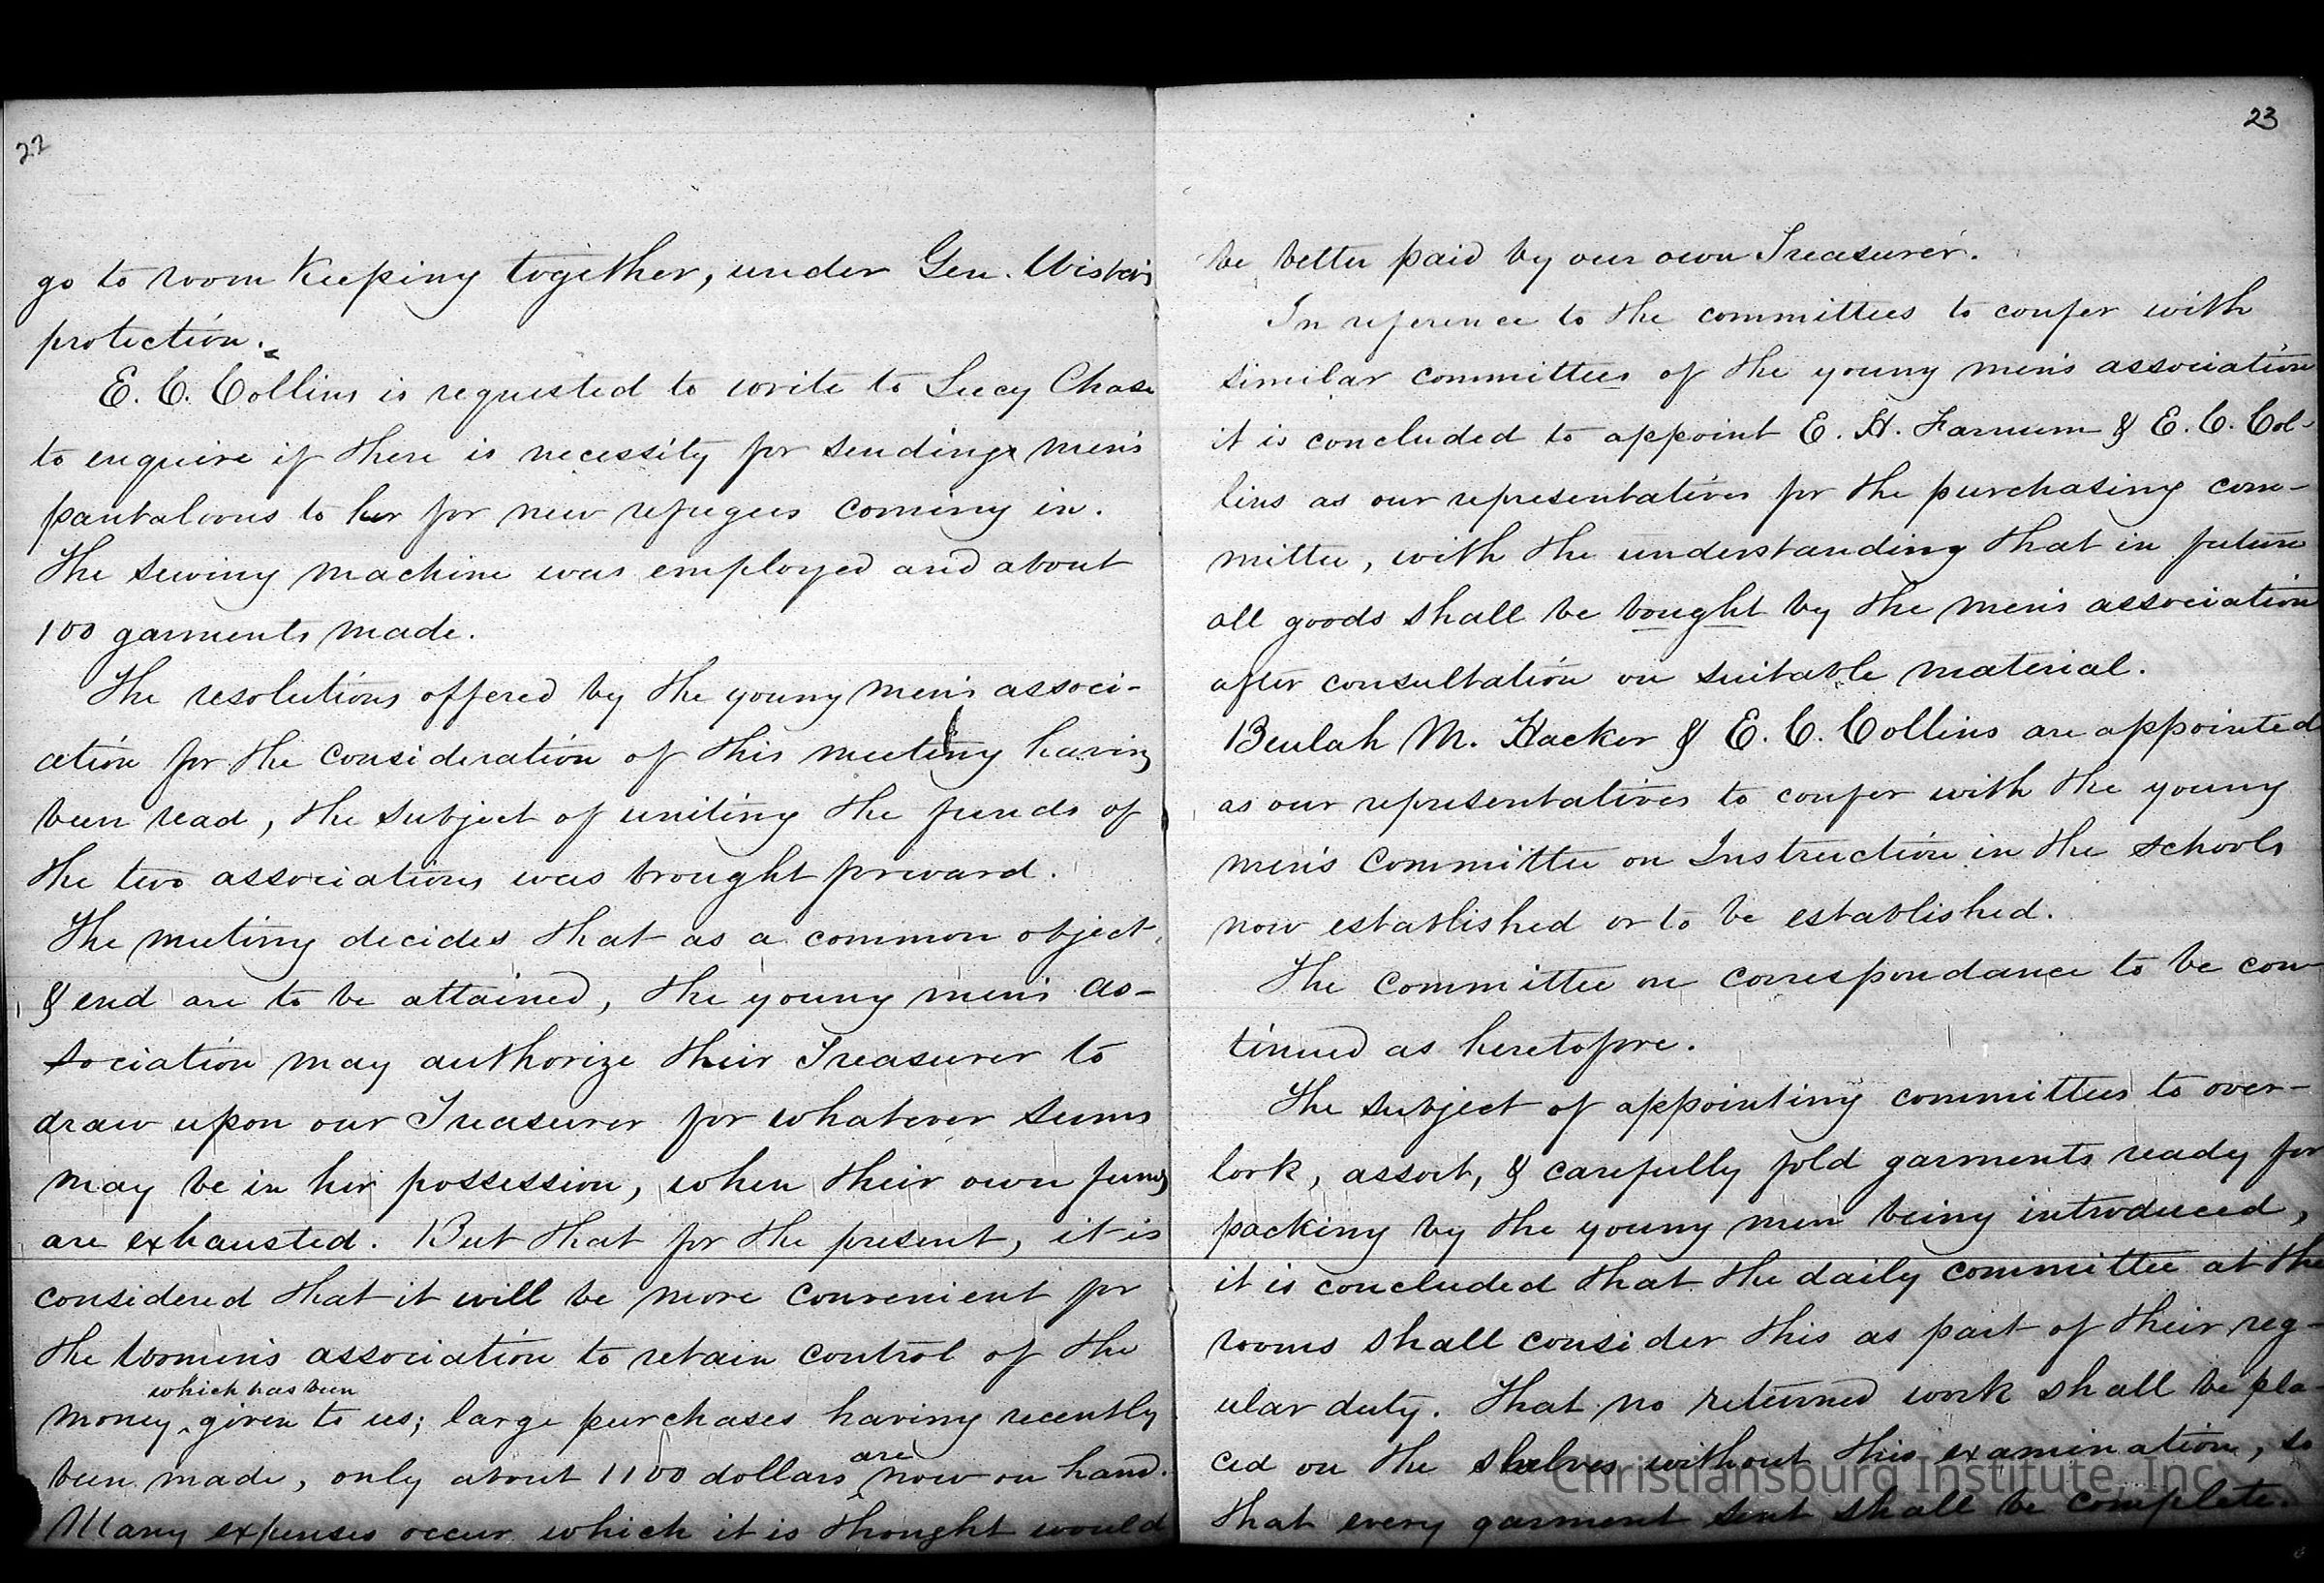 22
go to room keeping together, under Gen. Wistar's
protection.
E. C. Collins is requested to write to Lucy Chase
to enquire if there is necessity for sending men's
pantaloons to her for new refugees coming in.
The sewing machine was employed and about
100 garments made.
The resolutions offered by the young men's associ-
ation for the consideration of this meeting having
been read, the subject of uniting the funds of
the two associations was brought forward.
The meeting decides that as a common object
& end are to be attained, the young men's as-
sociation may authorize their Treasurer to
draw upon our Treasurer for whatever sums
may be in her possession, when their own funds
are exhausted. But that for the present, it is
considered that it will be more convenient for
the Women's association to retain control of the
which has been
money ‸ given to us; large purchases having recently
are
been made, only about 1100 dollars ‸ now on hand.
Many expenses occur which it is thought would
23
be better paid by our own Treasurer.
In reference to the committees to confer with
similar committees of the young men's association
it is concluded to appoint E. H. Farnum & E. C. Col-
lins as our representatives for the purchasing com-
mittee, with the understanding that in future
all goods shall be bought by the men's association
after consultation on suitable material.
Beulah M. Hacker & E. C. Collins are appointed
as our representatives to confer with the young
men's committee on Instruction in the schools
now established or to be established.
The committee on correspondance to be con-
tinued as heretofore.
The subject of appointing committees to over-
look, assort, & carefully fold garments ready for
packing by the young men being introduced,
it is concluded that the daily committee at the
rooms shall consider this as part of their reg-
ular duty. That no returned work shall be pla-
ced on the shelves without this examination, so
that every garment sent shall be complete.
Christiansburg Institute, Inc.